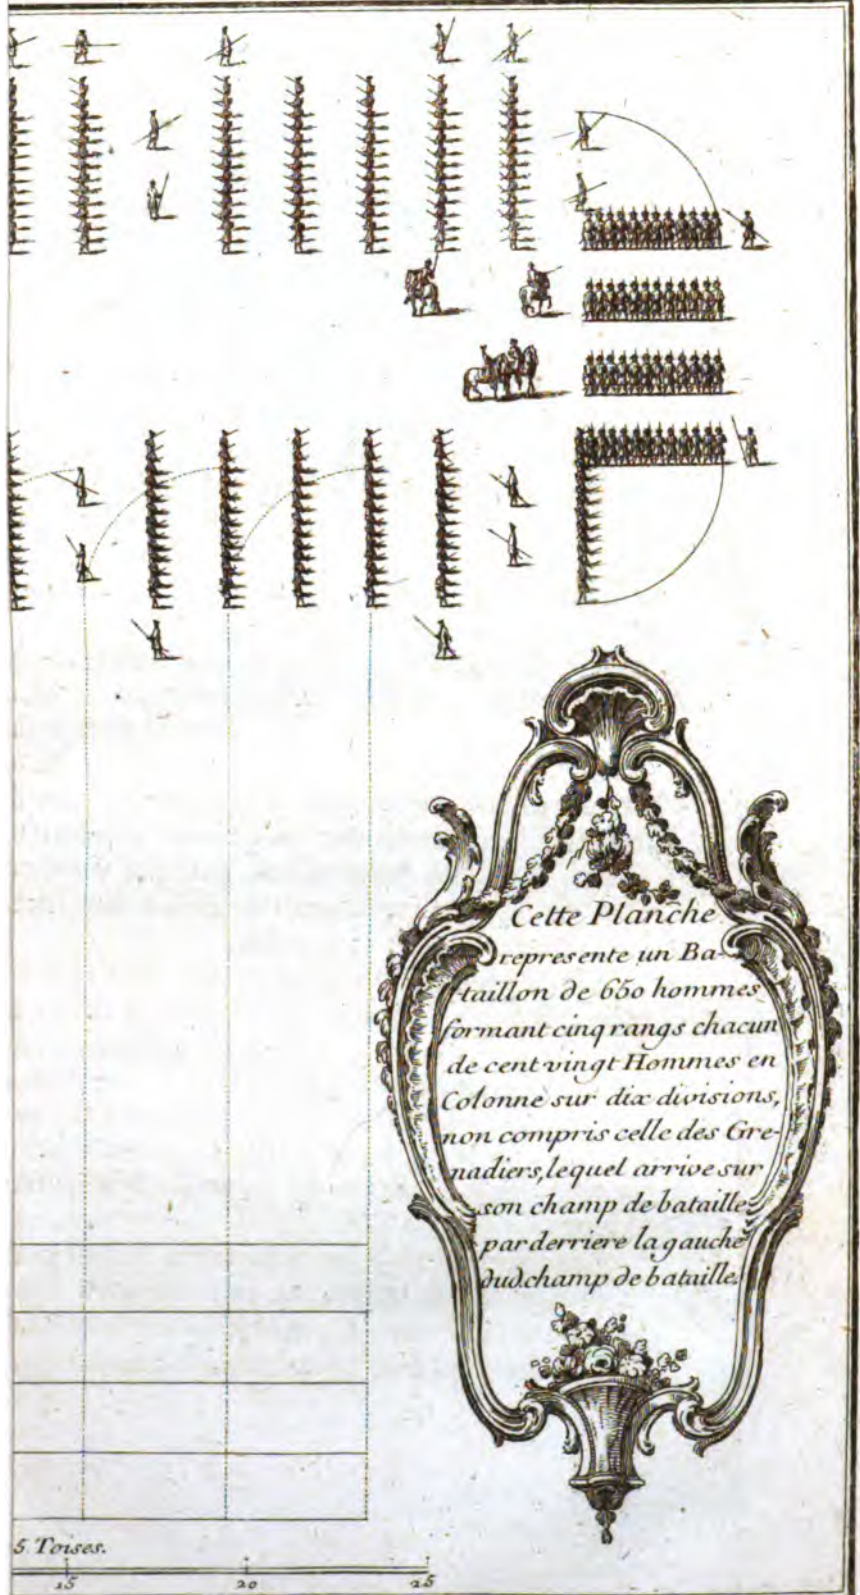 Cette Planche
represente un Ba-
taillon de 650 hommes
formant cinq rangs chacun
de cent vingt Hommes en
Colonne sur dix divisions,
non compris celle des Gre-
nadiers, lequel arrive sur
son champ de bataille
par derriere la gauche
dud. champ de bataille.
5 Toises.
15 20 25